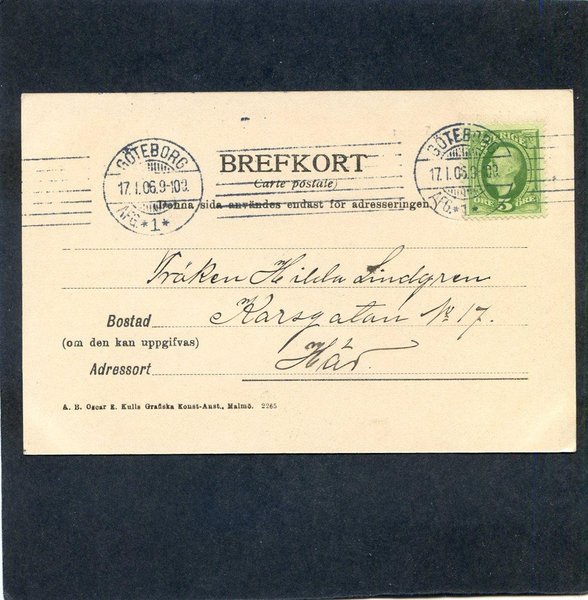 GÖTEBORG
17.1.06.9-10F.
AFG.*1*
BREFKORT
(Carte postale)
(Denna sida användes endast för adresseringen.)
GÖTEBORG
17.1.06.9-10F.
AFG.*1*
SVERIGE
ÖRE 5 ÖRE
Fröken Hilda Lindgren
Bostad Karsgatan No 17.
(om den kan uppgifvas)
Här.
Adressort
A. B. Oscar E. Kulls Grafiska Konst-Anst., Malmö. 2265